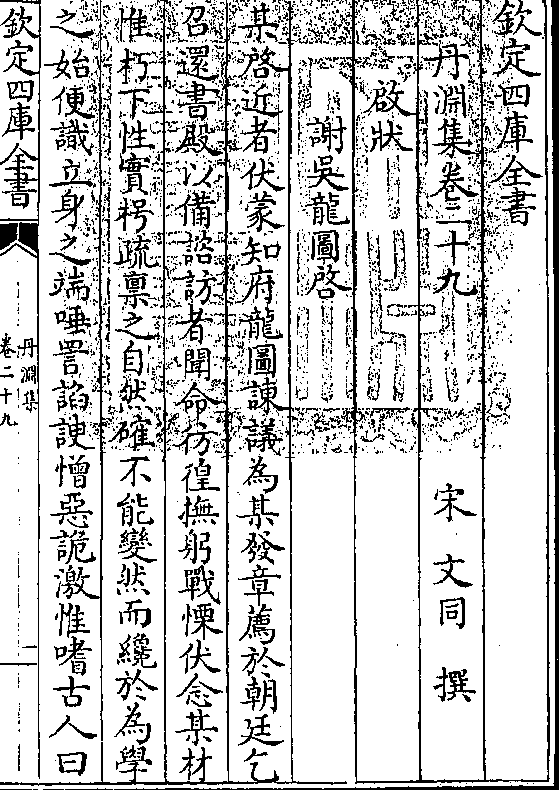 欽定四庫全書
丹淵集卷二十九
宋 文同 撰
啟狀
謝吳龍圖啓
某啓近者伏蒙知府龍圖諫議為某發章薦於朝廷乞
召還書殿以備諮訪者聞命彷徨撫躬戰慄伏念某材
惟朽下性實樗疏禀之自然確不能變然而纔於為學
之始便識立身之端唾詈諂諛憎惡詭激惟嗜古人曰
欽定四庫全書
丹淵集
卷二十九
一